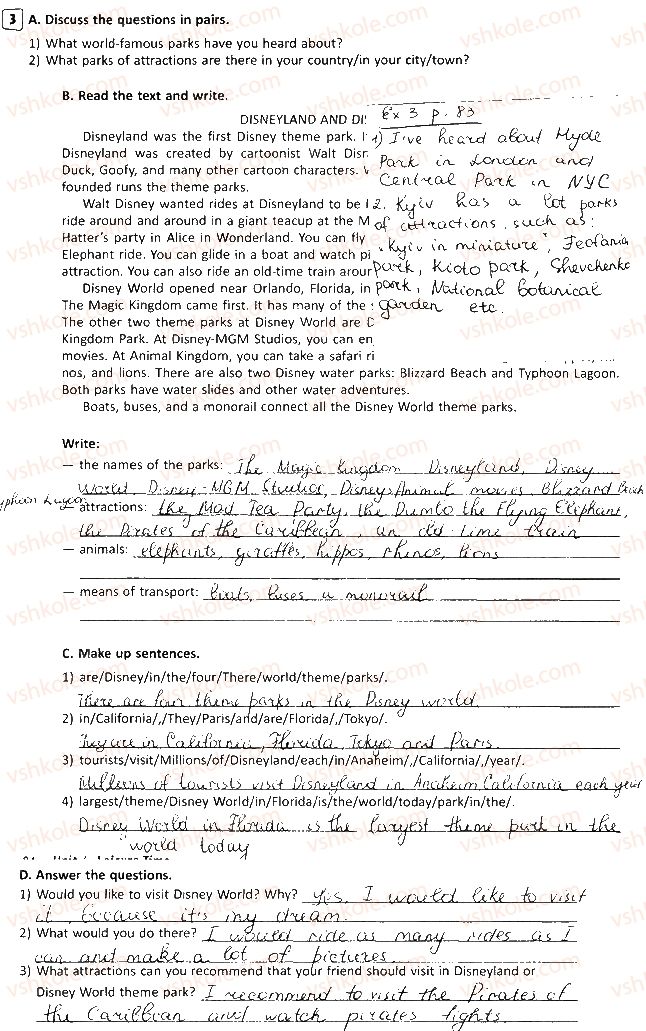 3 A. Discuss the questions in pairs.
1) What world-famous parks have you heard about?
2) What parks of attractions are there in your country/in your city/town?
B. Read the text and write.
DISNEYLAND AND DI
Ex 3 p. 83
Disneyland was the first Disney theme park. I
1) I've heard about Hyde
Disneyland was created by cartoonist Walt Disn
Park in London and
Duck, Goofy, and many other cartoon characters.
Central Park in NYC
founded runs the theme parks.
Walt Disney wanted rides at Disneyland to be l
2. Kyiv has a lot parks
ride around and around in a giant teacup at the M
of attractions, such as:
Hatter's party in Alice in Wonderland. You can fly
"Kyiv in miniature", Feofania
Elephant ride. You can glide in a boat and watch pi
park, Kioto park, Shevchenko
attraction. You can also ride an old-time train aroun
park, National botanical
Disney World opened near Orlando, Florida, in
garden etc.
The Magic Kingdom came first. It has many of the
The other two theme parks at Disney World are D
Kingdom Park. At Disney-MGM Studios, you can en
movies. At Animal Kingdom, you can take a safari ri
nos, and lions. There are also two Disney water parks: Blizzard Beach and Typhoon Lagoon.
Both parks have water slides and other water adventures.
Boats, buses, and a monorail connect all the Disney World theme parks.
Write:
— the names of the parks: The Magic Kingdom Disneyland, Disney
World Disney-MGM Studios, Disney Animal movies, Blizzard Beach
yphoon Lagoon
— attractions: the Mad Tea Party, the Dumbo the Flying Elephant,
the Pirates of the Caribbean, an old time train
— animals: elephants, giraffes, hippos, rhinos, lions
— means of transport: boats, buses a monorail
C. Make up sentences.
1) are/Disney/in/the/four/There/world/theme/parks/.
There are four theme parks in the Disney world.
2) in/California/,/They/Paris/and/are/Florida/,/Tokyo/.
They are in California, Florida, Tokyo and Paris.
3) tourists/visit/Millions/of/Disneyland/each/in/Anaheim/,/California/,/year/.
Millions of tourists visit Disneyland in Anaheim, California each year
4) largest/theme/Disney World/in/Florida/is/the/world/today/park/in/the/.
Disney World in Florida is the largest theme park in the
world today
D. Answer the questions.
1) Would you like to visit Disney World? Why? Yes, I would like to visit
it, because it's my dream.
2) What would you do there? I would ride as many rides as I
can and make a lot of pictures.
3) What attractions can you recommend that your friend should visit in Disneyland or
Disney World theme park? I recommend to visit the Pirates of
the Caribbean and watch pirates fights.
vshkole.com